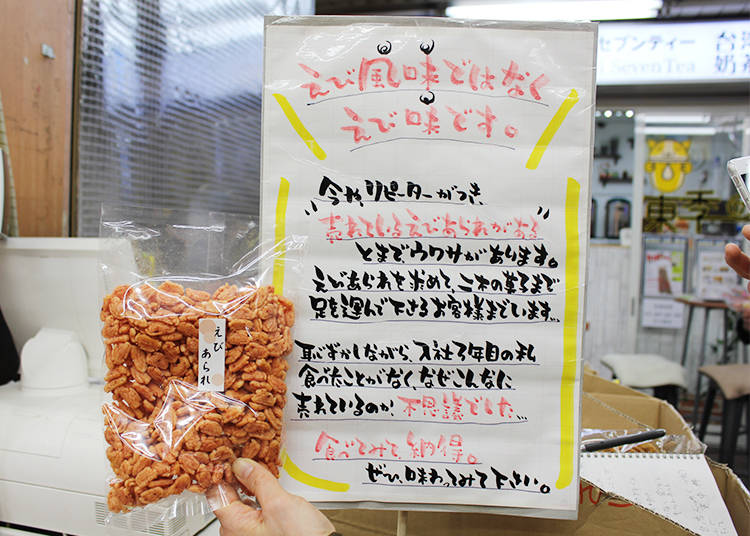 えび風味ではなく
えび味です。
"今や、リピーターがつき、
売れているえびあられがある"
とまでウワサがあります。
えびあられを求めて、二木の菓子まで
足を運んで下さるお客様までいます…
恥ずかしながら、入社3年目の私
食べたことがなく、なぜこんなに
売れているのか、不思議でした…
食べてみて、納得。
ぜひ、味わってみて下さい。
えび
あられ
セブンティー
SevenTea
台湾
奶茶